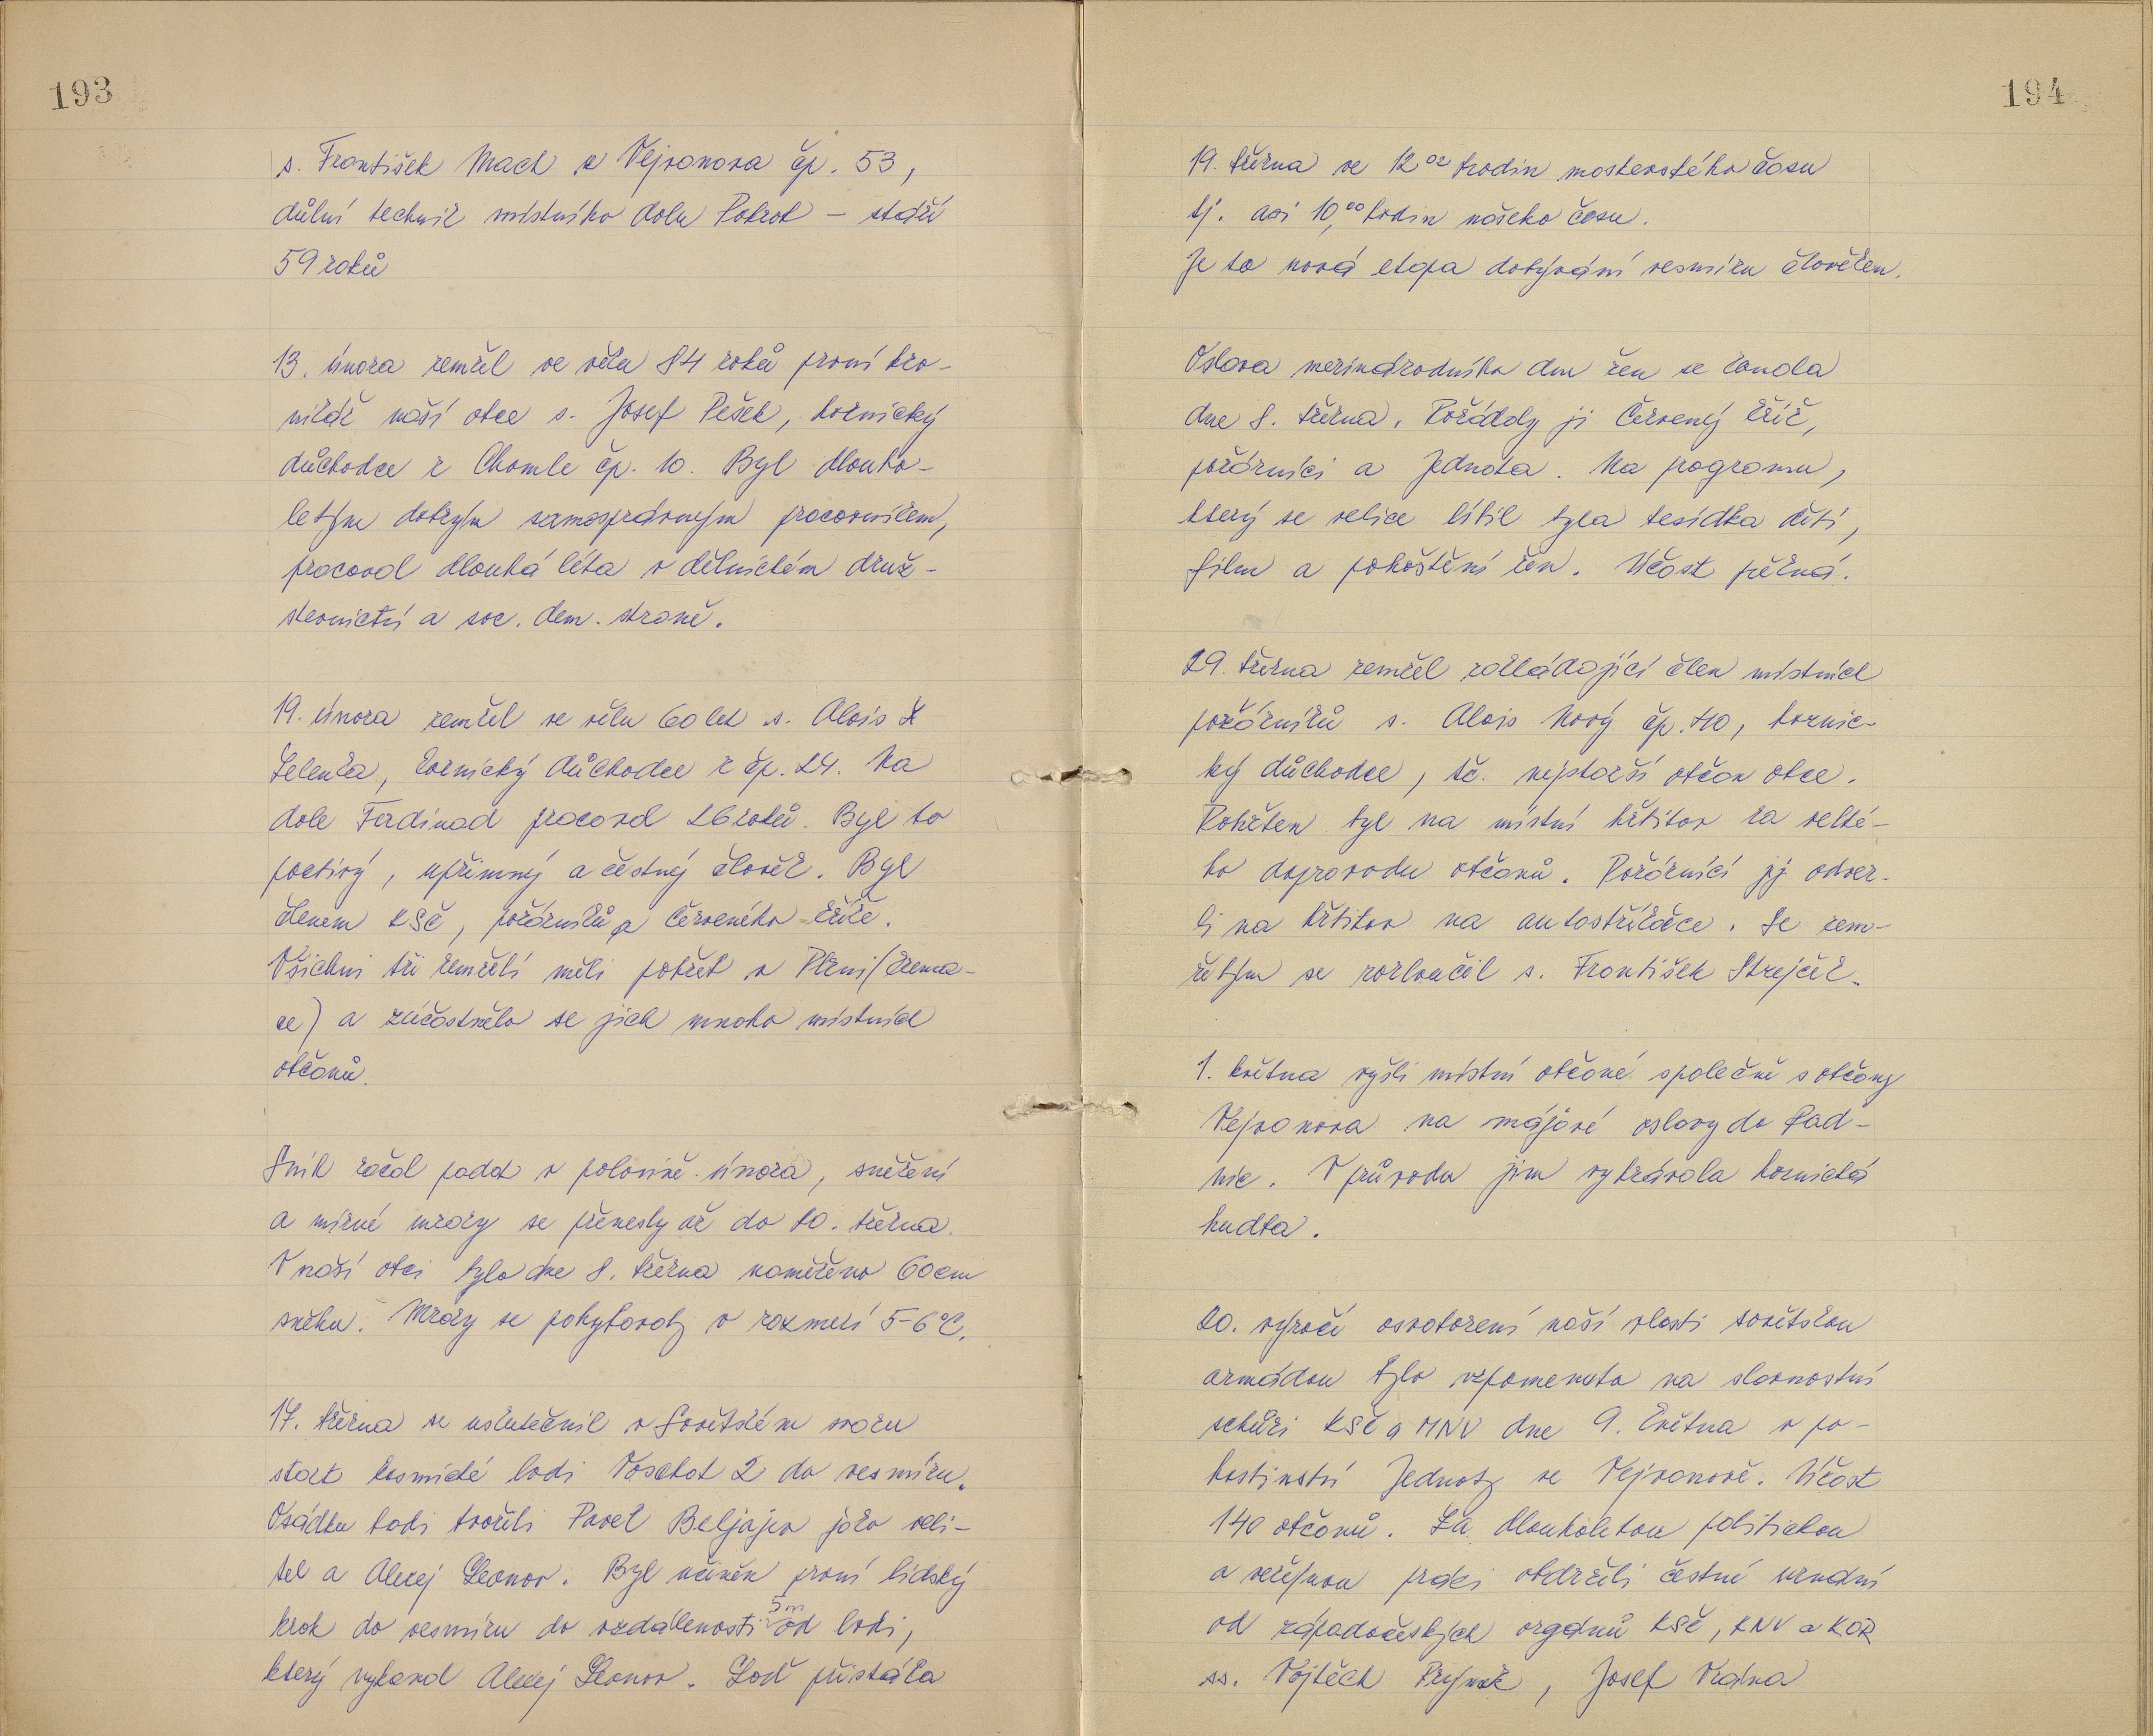 193
s. František Mach z Vejvanova čp. 53,
důlní technik místního dolu Pokrok – stáří
59 roků
13. února zemřel ve věku 84 roků první kro-
nikář naší obce s. Josef Pešek, hornický
důchodce z Chomle čp. 10. Byl dlouho-
letým dobrým samosprávným pracovníkem,
pracoval dlouhá léta v dělnickém druž-
stevnictví a soc. dem. straně.
19. února zemřel ve věku 60 let s. Alois
Zelenka, hornický důchodce z čp. 24. Na
dole Ferdinad pracoval 26 roků. Byl to
poctivý, upřimný a čestný člověk. Byl
členem KSČ, požárníků a Červeného kříže.
Všichni tři zemřelí měli pohřeb v Plzni (krema-
ce) a zúčastnělo se jich mnoho místních
občanů.
Sníh začal padat v polovině února, sněžení
a mírné mrazy se přenesly až do 10. března.
V naší obci bylo dne 8. března naměřeno 60 cm
sněhu. Mrazy se pohybovaly v rozmezí 5-6°C.
17. března se uskutečnil v Sovětském svazu
start kosmické lodi Voschot 2 do vesmíru.
Osádku lodi tvořili Pavel Beljajev jako veli-
tel a Alexej Leonov. Byl učiněn první lidský
krok do vesmíru do vzdálenosti 5 m od lodi,
který vykonal Alexej Leonov. Loď přistála
194
19. března ve 12⁰² hodin moskevského času
tj. asi 10,⁰⁰ hodin našeho času.
Je to nová etapa dobývání vesmíru člověkem.
Oslava mezinárodního dne žen se konala
dne 8. března. Pořádaly ji Červený kříž,
požárníci a Jednota. Na programu,
který se velice líbil byla besídka dětí,
film a pohoštění žen. Účast pěkná.
29. března zemřel zakládající člen místních
požárníků s. Alois Nový čp. 40, hornic-
ký důchodce, tč. nejstarší občan obce.
Pohřben byl na místní hřbitov za velké-
ho doprovodu občanů. Požárníci jej odvez-
li na hřbitov na autostříkačce. Se zem-
řelým se rozloučil s. František Strejček.
1. května vyšli místní občané společně s občany
Vejvanova na májové oslavy do Rad-
nic. V průvodu jim vyhrávala hornická
hudba.
20. výročí osvobození naší vlasti sovětskou
armádou bylo vzpomenuto na slavnostní
schůzi KSČ a MNV dne 9. května v po-
hostinství Jednoty ve Vejvanově. Účast
140 občanů. Za dlouholetou politickou
a veřejnou práci obdrželi čestné uznání
od západočeských orgánů KSČ, KNV a KOR
ss. Vojtěch Josef